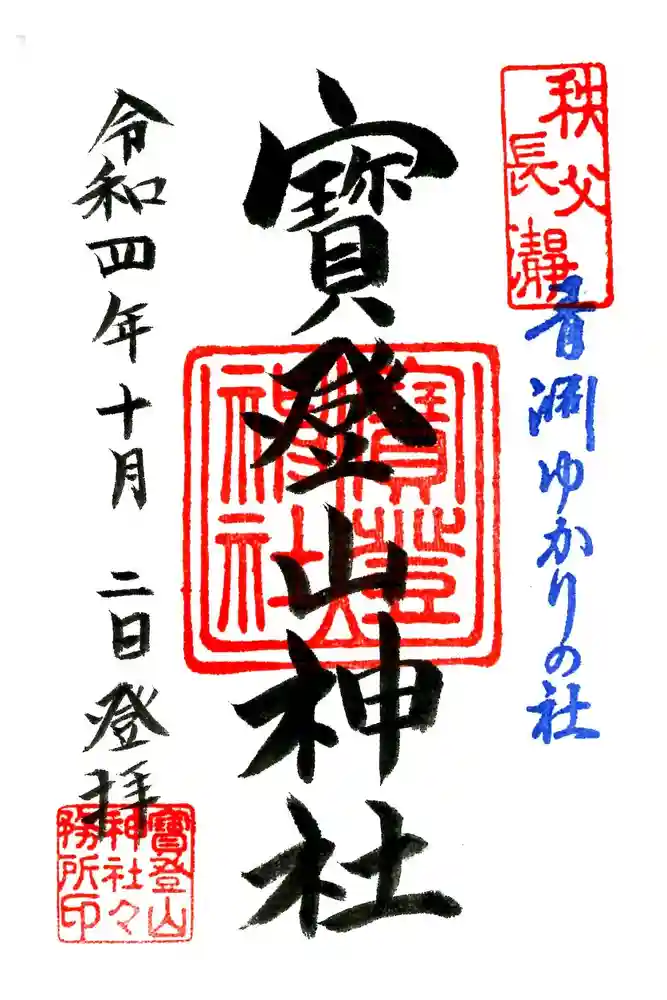 秩父
長瀞
青淵ゆかりの社
寳登山神社
寳登山
神社
令和四年十月 二日登拝
寳登山
神社々
務所印